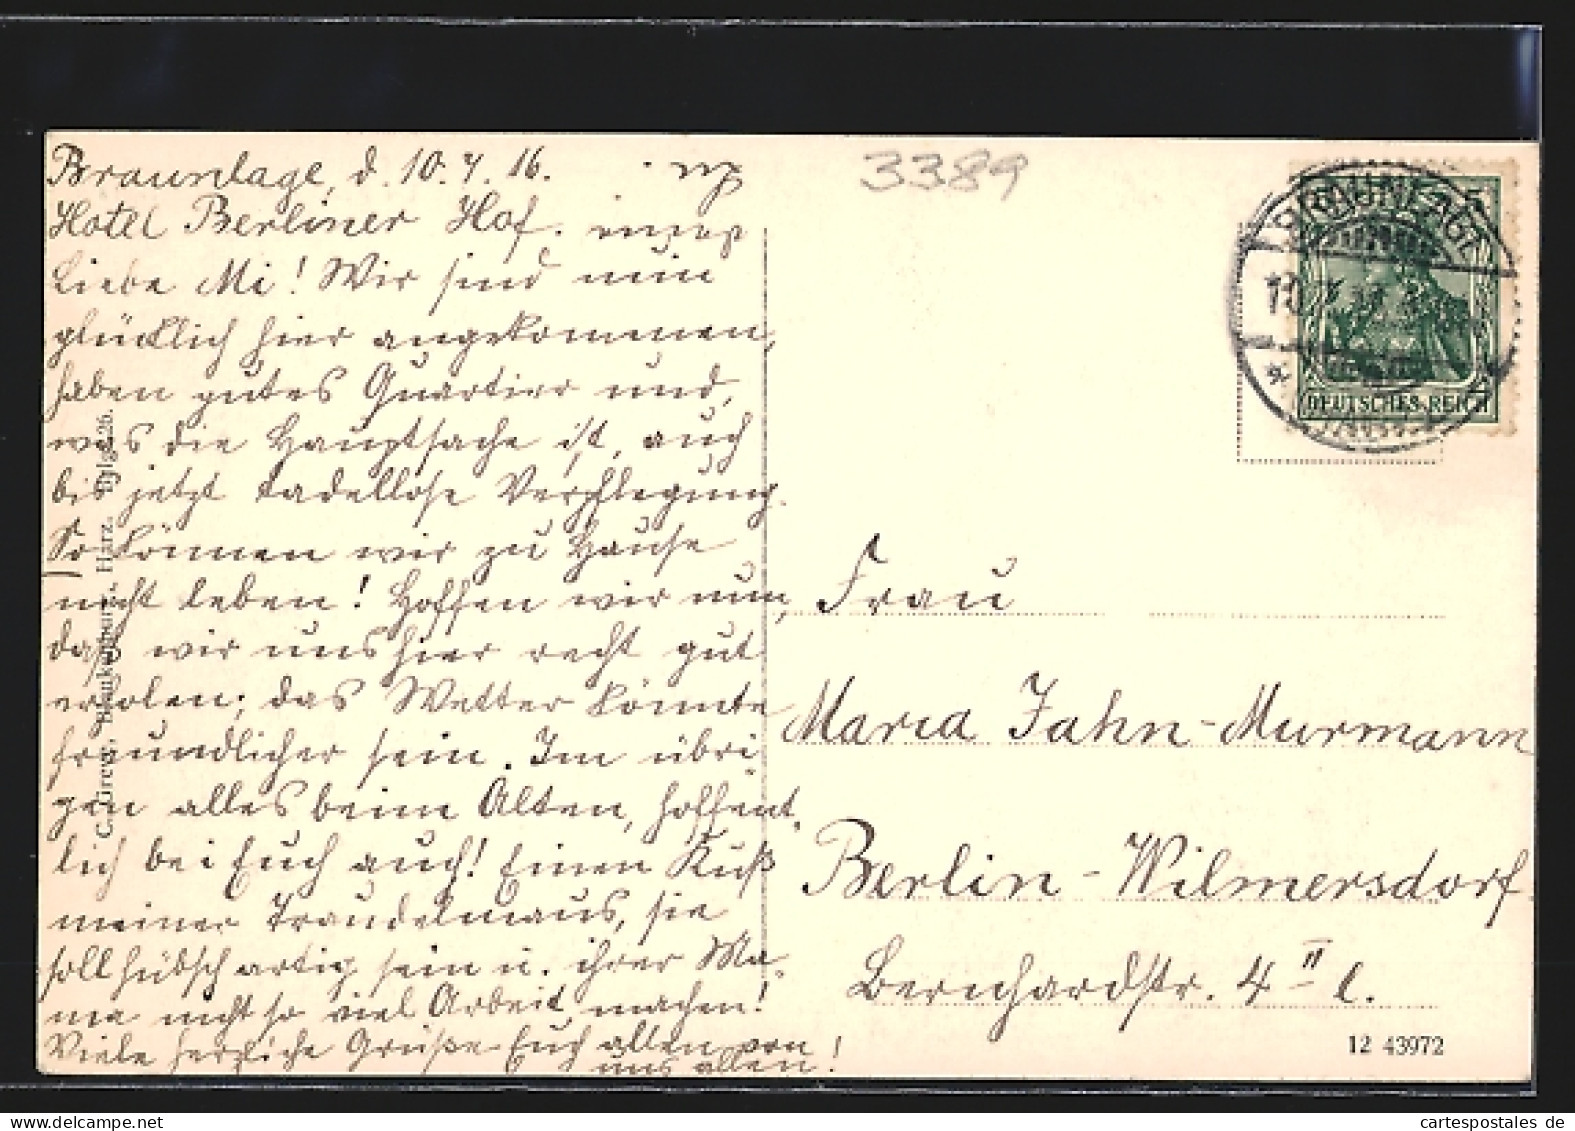 Braunlage, d. 10. 7. 16.
3389
Hotel Berliner Hof.
Liebe Mi! Wir sind nun
glücklich hier angekommen,
haben gutes Quartier und,
was die Hauptsache ist, auch
bis jetzt tadellose Verpflegung.
So können wir zu Hause
nicht leben! Hoffen wir nun,
daß wir uns hier recht gut
erholen; das Wetter könnte
freundlicher sein. Im übri-
gen alles beim Alten, hoffent-
lich bei Euch auch! Einen Kuß
meiner Traudelmaus, sie
soll hübsch artig sein u. ihrer Ma-
ma nicht so viel Arbeit machen!
Viele herzliche Grüße Euch allen von
uns allen!
BRAUNLAGE
10. 7.
5
DEUTSCHES REICH
Frau
Maria Jahn-Murmann
Berlin-Wilmersdorf
Bernhardstr. 4 II l.
12 43972
Harz.
cartespostales de